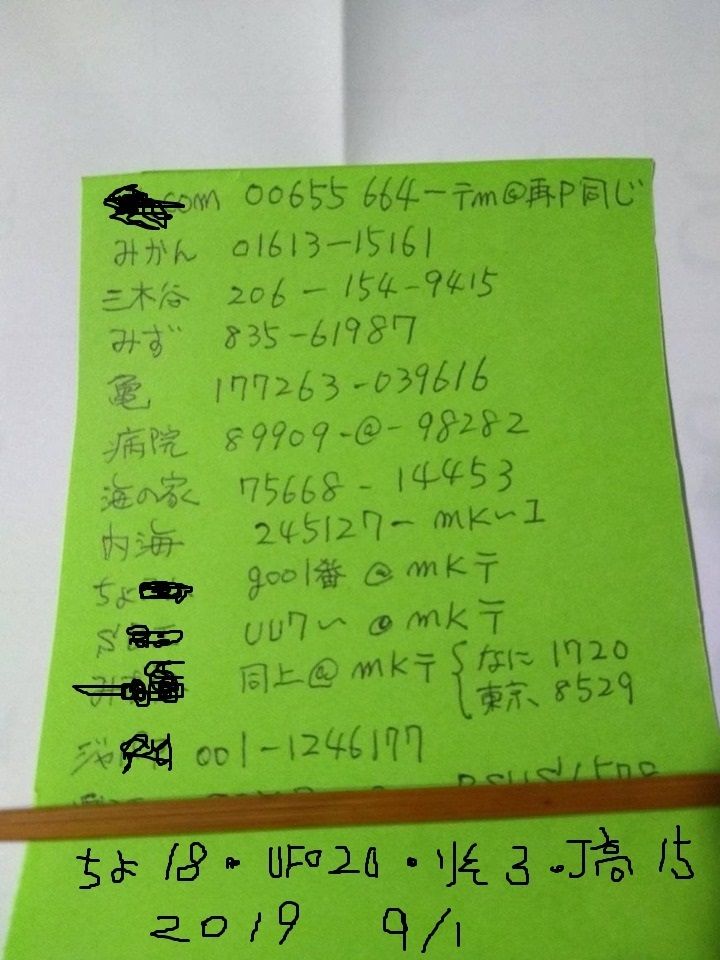 com 00655 664-テm@再P同じ
みかん 01613-15161
三木谷 206-154-9415
みず 835-61987
亀 177263-039616
病院 89909-@-98282
海の家 75668-14453
内海 245127-mK~I
ちょ goo1番@mKテ
UUワ~@mKテ
同上@mKテ{なに 1720
東京、8529
ジャ 001-1246177
ちよ18・UFO20・リそ3・J高15
2019 9/1